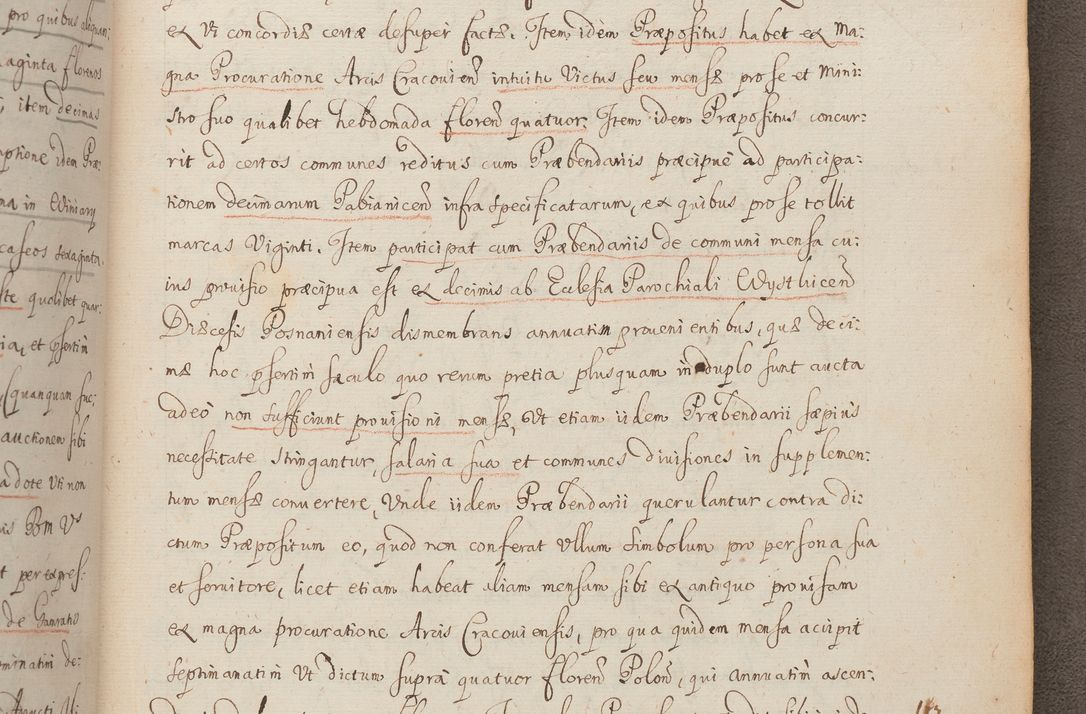 ex vi concordiæ certæ desuper factæ. Item idem Præpositus habet ex Ma:
gna Procuratione Arcis Cracovien̄ intuitu Victus seu mensæ pro se et Mini:
stro suo qualibet hebdomada floren̄ quatuor. Item idem Præpositus concur:
rit ad certos communes reditus cum Præbendariis præcipuè ad participa:
tionem decimarum Pabianicen̄ infra specificatarum, ex quibus pro se tollit
marcas Viginti. Item participat cum Præbendariis de communi mensa cu:
ius provisio præcipua est ex decimis ab Ecclesia Parochiali
Diæcesis Posnaniensis dismembrans annuatim provenientibus, quæ deci:
mæ hoc psertim sæculo quo rerum pretia plusquam in duplo sunt aucta
adeò non sufficiunt provisioni mensæ, Ut etiam iidem Præbendarii sæpius
necessitate stringantur, salaria sua et communes divisiones in supplemen:
tum mensæ convertere, Unde iidem Præbendarii querulantur contra di:
ctum Præpositum eo, quod non conferat Ullum simbolum pro persona sua
et servitore, licet etiam habeat aliam mensam sibi ex antiquo provisam
ex magna procuratione Arcis Cracoviensis, pro qua quidem mensa accipit
septimanatim Ut dictum suprà quatuor floren̄ Polon̄, qui annuatim̄ ascen:
pro quibus
aginta florenos
item decimas
idem Præ:
na in
caseos sexaginta
quolibet quar:
et psertim
(quanquam suc:
auctionem sibi
a dote Uti non
per expres:
de
minatim de: